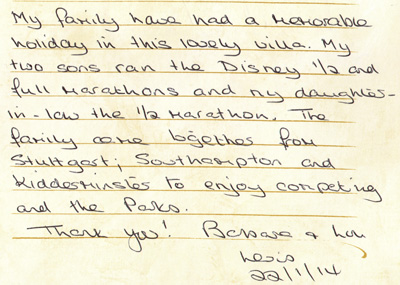 My family have had a memorable
holiday in this lovely villa. My
two sons ran the Disney 1/2 and
full Marathons and my daughter-
in-law the 1/2 Marathon. The
family came together from
Stuttgart; Southampton and
Kidderminster to enjoy competing
and the Parks.
Thank you! Barbara &
Lewis
22/1/14